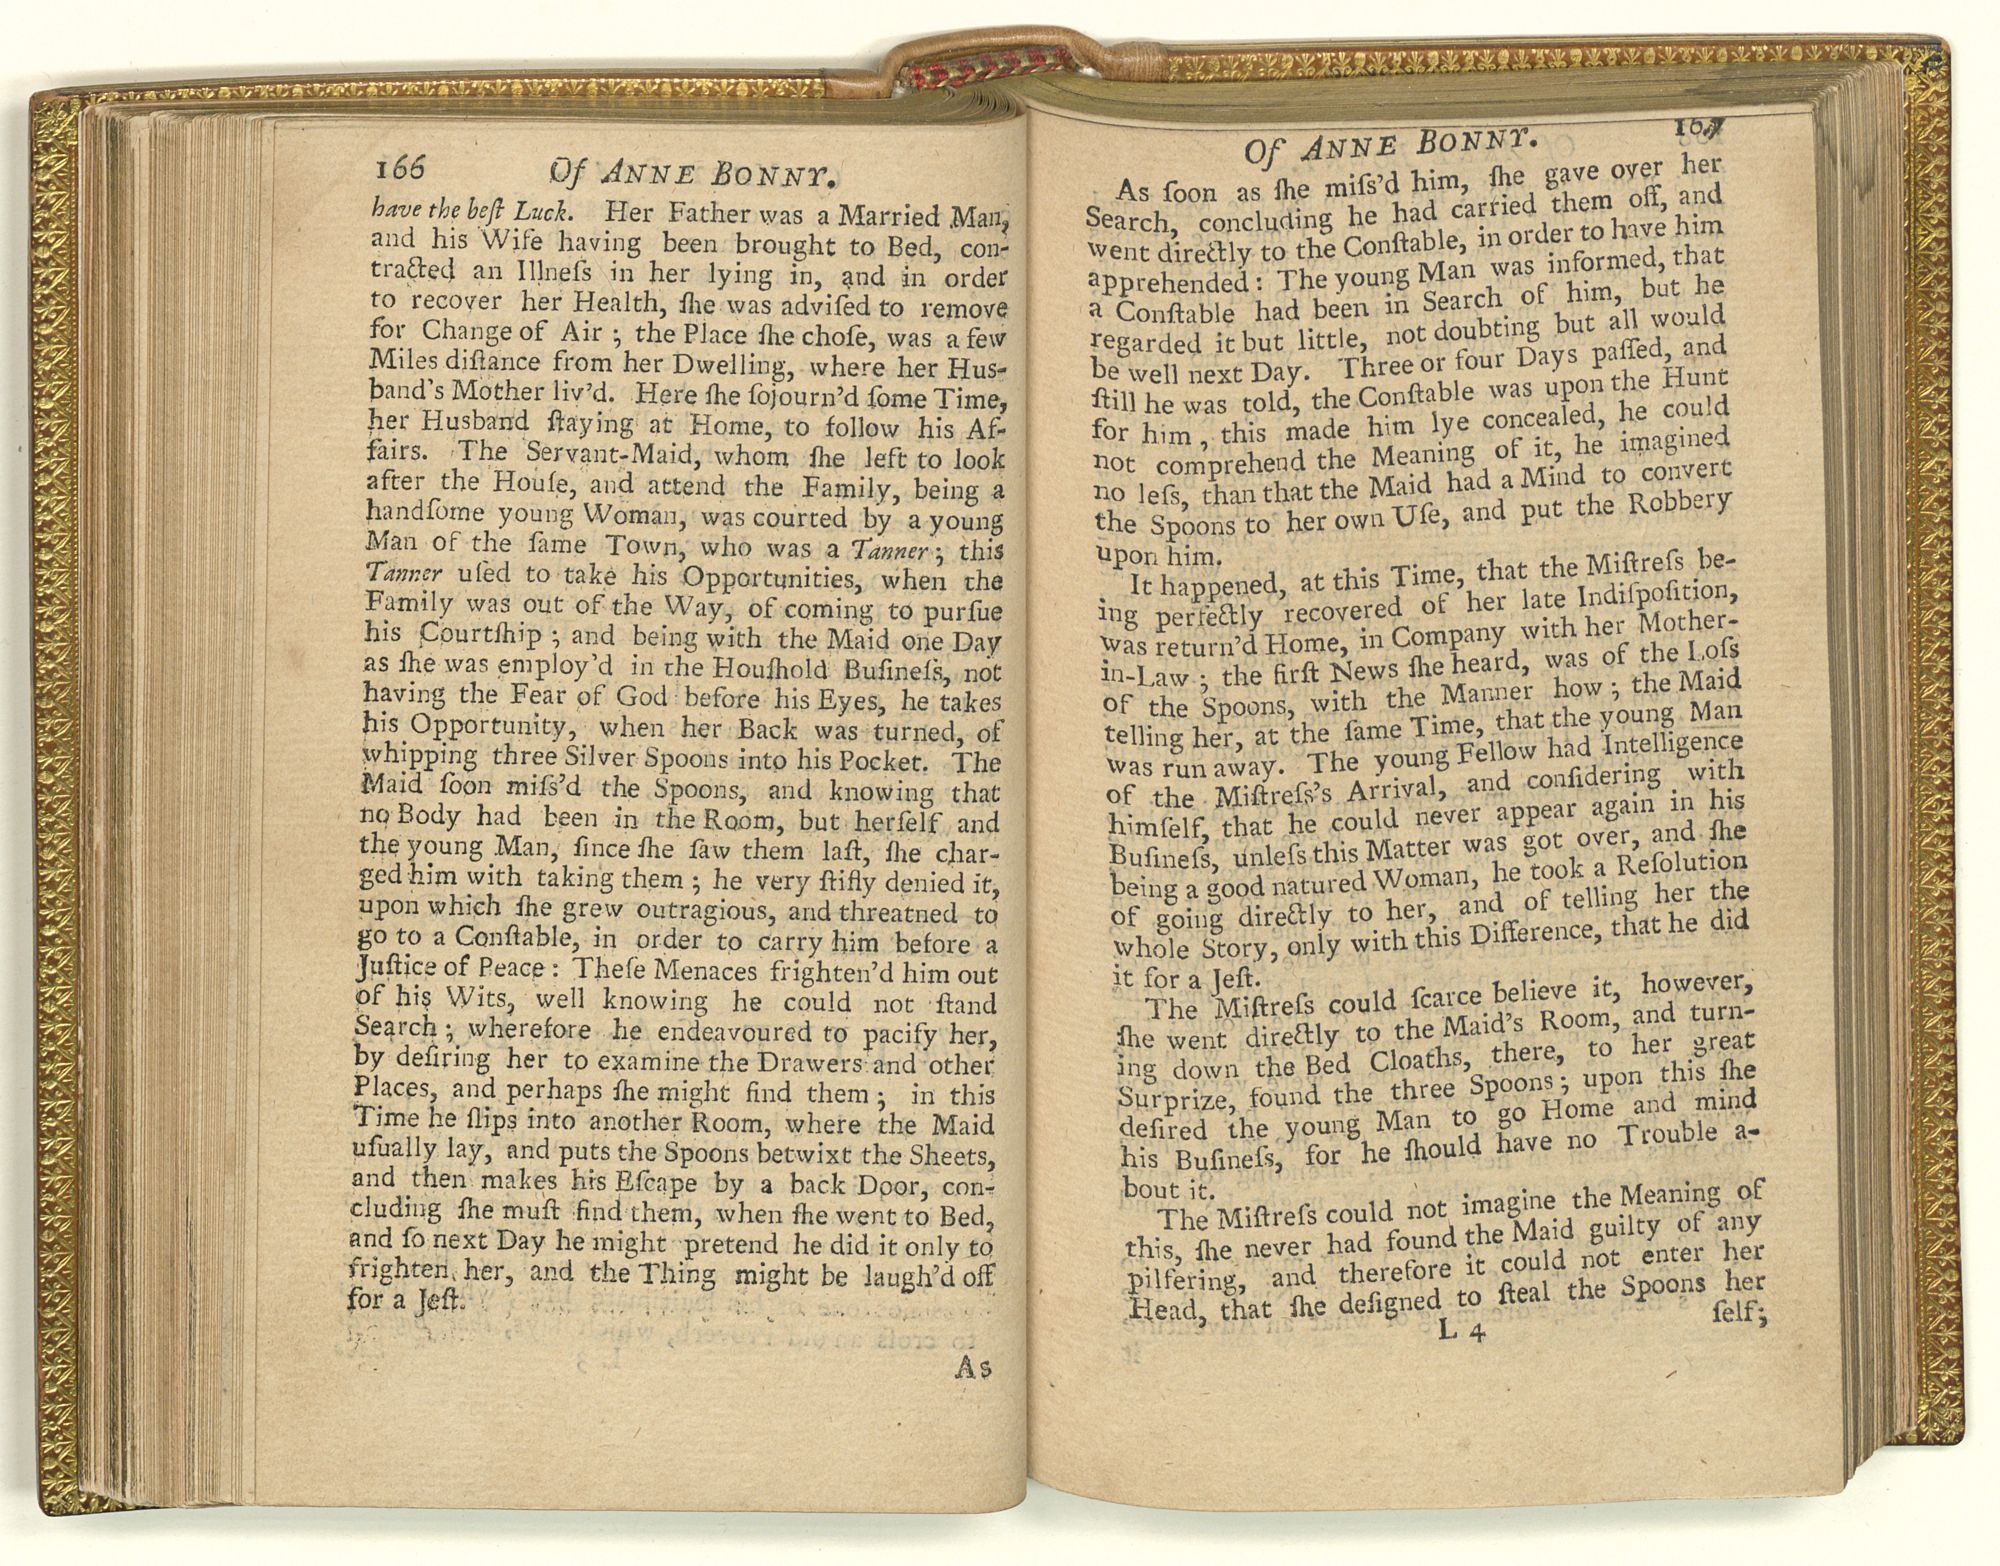 166 Of ANNE BONNY.
have the beſt Luck. Her Father was a Married Man,
and his Wife having been brought to Bed, con-
tracted an Illneſs in her lying in, and in order
to recover her Health, ſhe was adviſed to remove
for Change of Air ; the Place ſhe choſe, was a few
Miles diſtance from her Dwelling, where her Huſ-
band's Mother liv'd. Here ſhe ſojourn'd ſome Time,
her Husband ſtaying at Home, to follow his Af-
fairs. The Servant-Maid, whom ſhe left to look
after the Houſe, and attend the Family, being a
handſome young Woman, was courted by a young
Man of the ſame Town, who was a Tanner ; this
Tanner uſed to take his Opportunities, when the
Family was out of the Way, of coming to purſue
his Courtſhip ; and being with the Maid one Day
as ſhe was employ'd in the Houſhold Buſineſs, not
having the Fear of God before his Eyes, he takes
his Opportunity, when her Back was turned, of
whipping three Silver Spoons into his Pocket. The
Maid ſoon miſs'd the Spoons, and knowing that
no Body had been in the Room, but herſelf and
the young Man, ſince ſhe ſaw them laſt, ſhe char-
ged him with taking them ; he very ſtifly denied it,
upon which ſhe grew outragious, and threatned to
go to a Conſtable, in order to carry him before a
Juſtice of Peace : Theſe Menaces frighten'd him out
of his Wits, well knowing he could not ſtand
Search ; wherefore he endeavoured to pacify her,
by deſiring her to examine the Drawers and other
Places, and perhaps ſhe might find them ; in this
Time he ſlips into another Room, where the Maid
uſually lay, and puts the Spoons betwixt the Sheets,
and then makes his Eſcape by a back Door, con-
cluding ſhe muſt find them, when ſhe went to Bed,
and ſo next Day he might pretend he did it only to
frighten her, and the Thing might be laugh'd off
for a Jeſt.
As
Of ANNE BONNY. 167
As ſoon as ſhe miſs'd him, ſhe gave over her
Search, concluding he had carried them off, and
went directly to the Conſtable, in order to have him
apprehended : The young Man was informed, that
a Conſtable had been in Search of him, but he
regarded it but little, not doubting but all would
be well next Day. Three or four Days paſſed, and
ſtill he was told, the Conſtable was upon the Hunt
for him, this made him lye concealed, he could
not comprehend the Meaning of it, he imagined
no leſs, than that the Maid had a Mind to convert
the Spoons to her own Uſe, and put the Robbery
upon him.
It happened, at this Time, that the Miſtreſs be-
ing perfectly recovered of her late Indiſpoſition,
was return'd Home, in Company with her Mother-
in-Law ; the firſt News ſhe heard, was of the Loſs
of the Spoons, with the Manner how ; the Maid
telling her, at the ſame Time, that the young Man
was run away. The young Fellow had Intelligence
of the Miſtreſs's Arrival, and conſidering with
himſelf, that he could never appear again in his
Buſineſs, unleſs this Matter was got over, and ſhe
being a good natured Woman, he took a Reſolution
of going directly to her, and of telling her the
whole Story, only with this Difference, that he did
it for a Jeſt.
The Miſtreſs could ſcarce believe it, however,
ſhe went directly to the Maid's Room, and turn-
ing down the Bed Cloaths, there, to her great
Surprize, found the three Spoons ; upon this ſhe
deſired the young Man to go Home and mind
his Buſineſs, for he ſhould have no Trouble a-
bout it.
The Miſtreſs could not imagine the Meaning of
this, ſhe never had found the Maid guilty of any
pilfering, and therefore it could not enter her
Head, that ſhe deſigned to ſteal the Spoons her
L 4 ſelf;